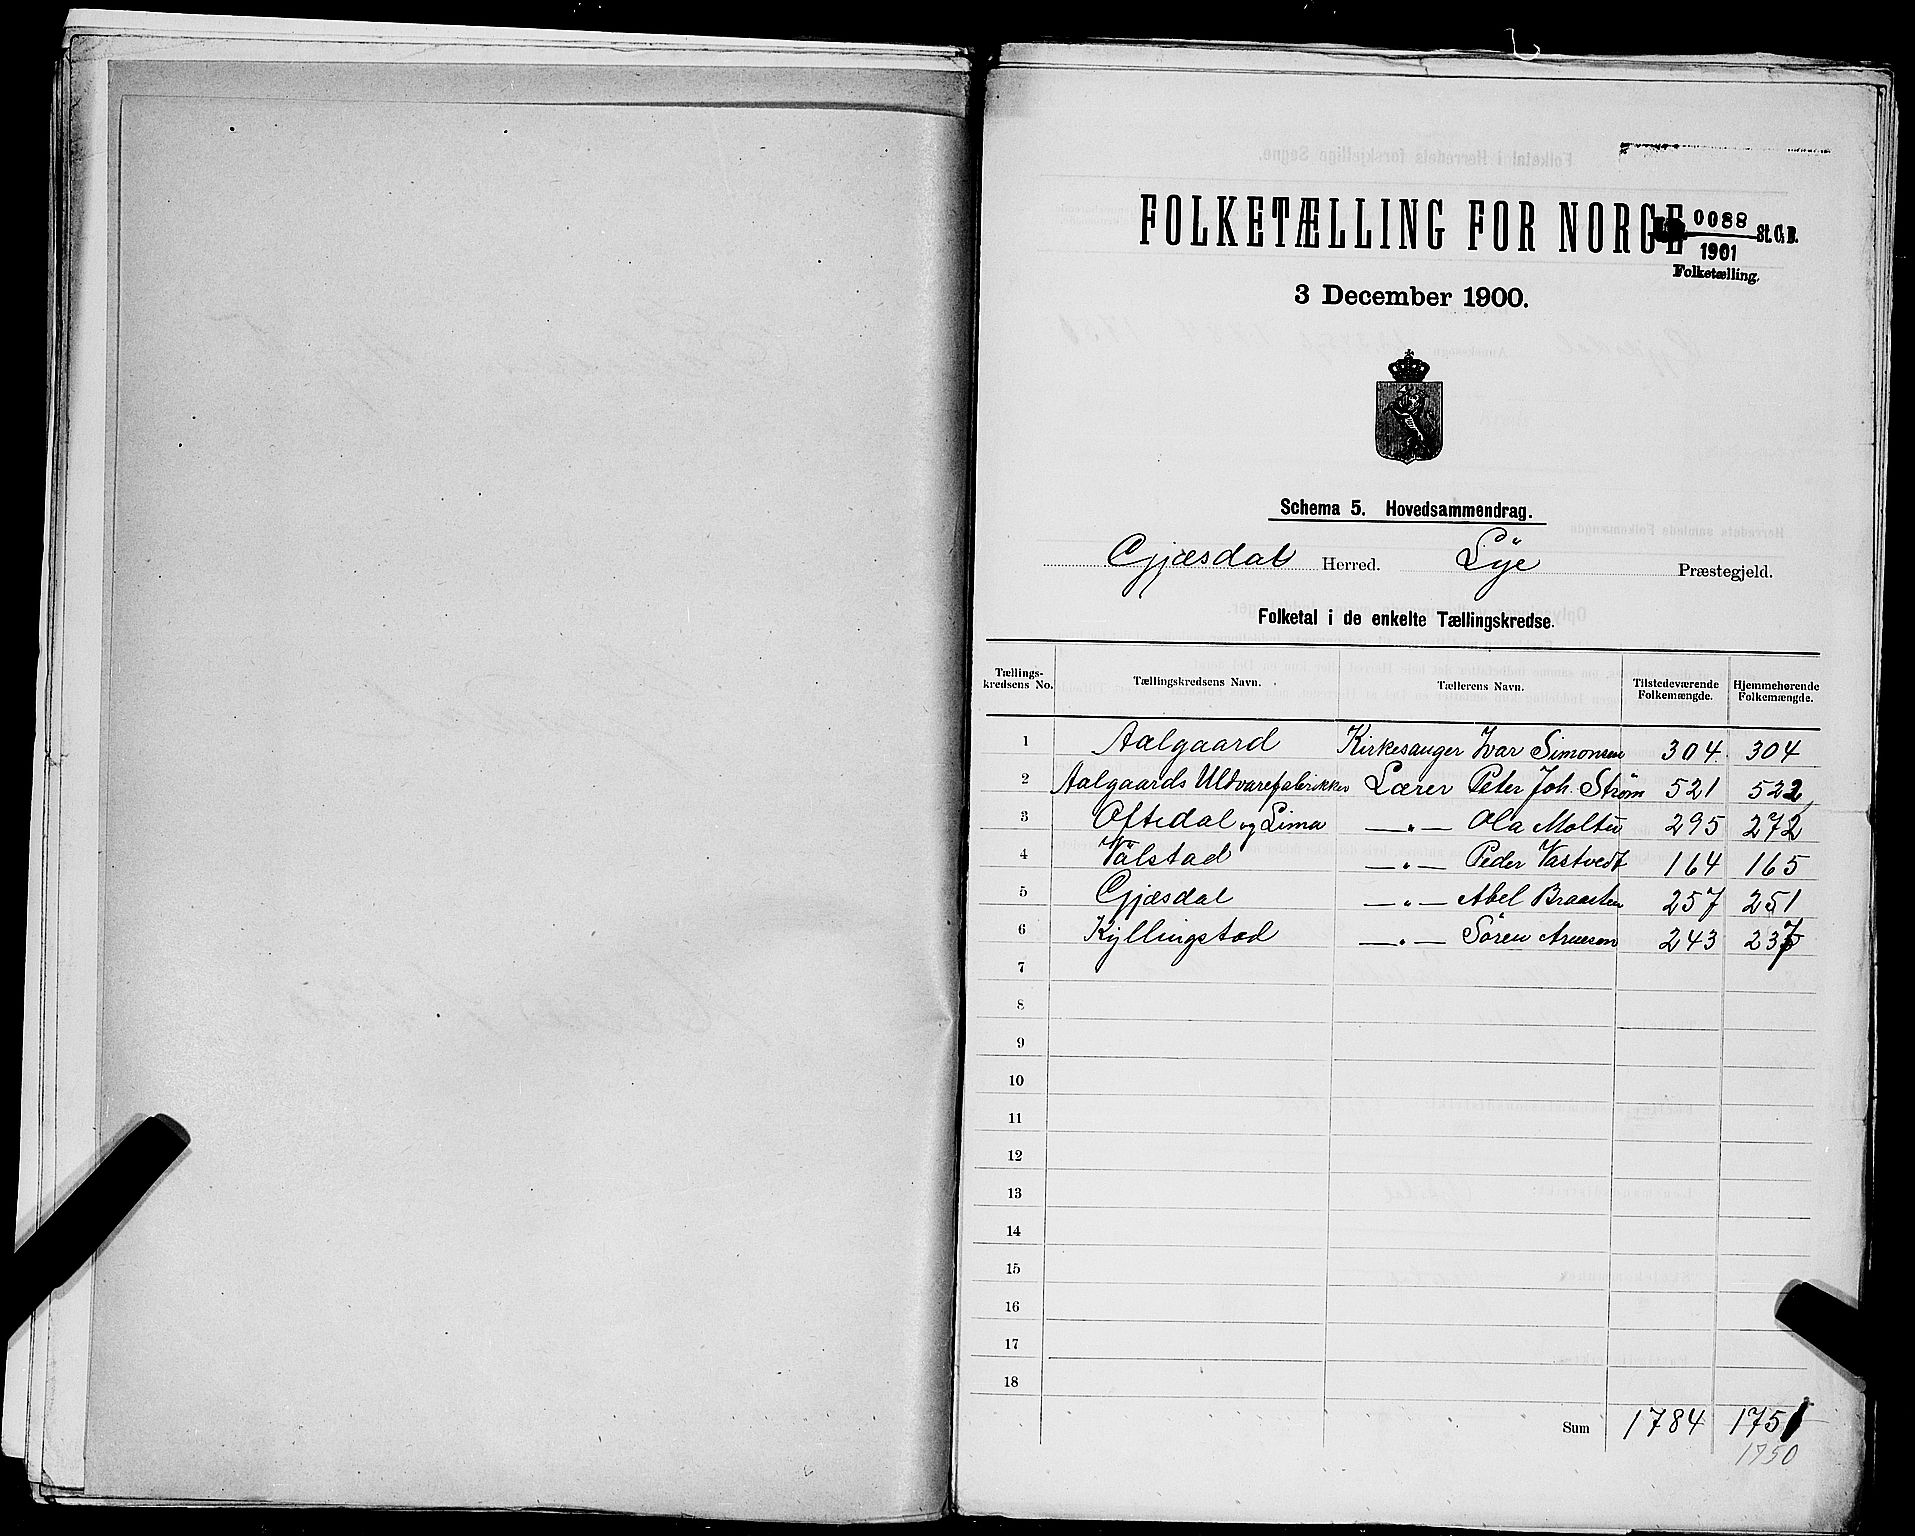 FOLKETÆLLING FOR NORGE
0088 St. C. B.
1901
Folketælling.
3 December 1900.
Schema 5. Hovedsammendrag.
Gjæsdal Herred. Lye Præstegjeld.
Folketal i de enkelte Tællingskredse.
Tællings-kredsens No. Tællingskredsens Navn. Tællerens Navn. Tilstedeværende Folkemængde. Hjemmehørende Folkemængde.
1 Aalgaard Kirkesanger Ivar Simonsen 304 304
2 Aalgaards Uldvarefabrikker Lærer Peter Joh. Strøm 521 522
3 Oftedal og Lima —"— Ola Moltu 295 272
4 Vålstad —"— Peder Vastvedt 164 165
5 Gjæsdal —"— Abel Braasten 257 251
6 Kyllingstad —"— Sören Arneson 243 237
7
8
9
10
11
12
13
14
15
16
17
18
Sum 1784 1751
1750